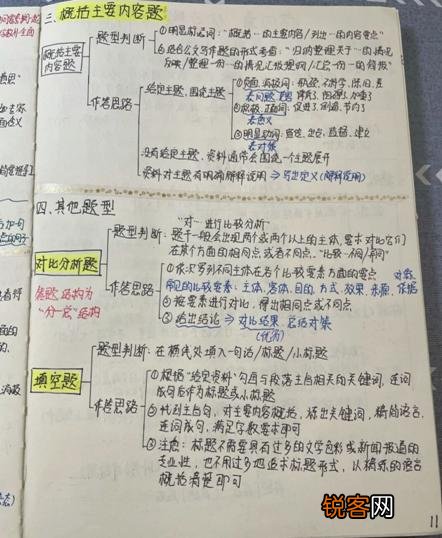 三、概括主要内容题
概括主要内容题
题型判断
① 明显标志词：“概括…的主要内容/列出…的内容要点”
② 结合公文写作题的形式考查：“归纳整理关于…的情况
反映/整理一份…的情况汇报提纲/汇总一份…的简报”
作答思路
给定主题，围绕主题
表问题
②积极、正面词：促进了、创造、节约了
表意义
③明显动词：宣传、出台、监督、建立
表对策
没有给定主题，资料通常会围绕一个主题展开
资料对主题有明确解释说明 → 写出定义(解释说明)
四、其他题型
“对…进行比较分析”
对比分析题
题型判断：题干一般会出现两个或两个以上的主体，要求对比它们
在某个方面的相同点或者不同点，“比较…不同/异同”
答题结构为
“分—总”结构
作答思路
①依次罗列不同主体在各个比较要素方面的要点
常见的比较要素：主体、客体、目的、方式、效果、来源、依据
对象
②按要素进行对比，得出相同点或不同点
③给出结论 → 对比结果、总结对策
(优劣)
填空题
题型判断：在横线处填入一句话/标题/小标题
作答思路
①根据“给定资料”勾画与段落主旨相关的关键词，连词
成句后作为标题或小标题
②找到主旨句，对主要内容概括，标出关键词，精简语言，
连词成句，满足字数要求即可
③注意：标题不需要具有过多的文学色彩或新闻报道的
专业性，也不用过多地追求标题形式，以精练的语言
概括清楚即可
11
锐客网